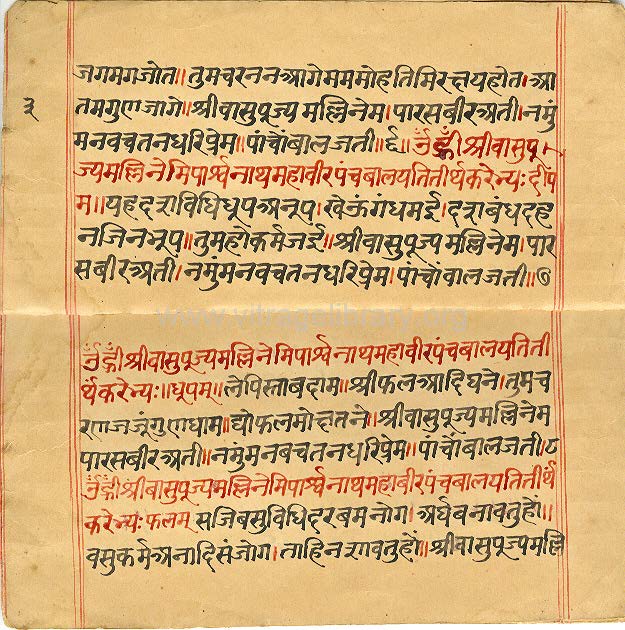 जगमगजोत॥तुमचरननआगेमममोहतिमिरक्षयहोत।आ
३
तमगुणजागे॥श्रीवासुपूज्यमल्लिनेम।पारसबीरअती।नमुं
मनवचतनधरिप्रेम।पांचोंबालजती॥६॥ॐह्रींश्रीवासुपू
ज्यमल्लिनेमिपार्श्वनाथमहावीरपंचबालयतितीर्थकरेभ्यः दीप
म॥यहदशविधिधूपअनूप।खेऊंगंधमई।दशबंधदह
नजिनभूप॥तुमहोकर्मजई॥श्रीवासुपूज्यमल्लिनेम।पार
सबीरअती।नमुंमनवचतनधरिप्रेम।पांचोंबालजती॥७
www.vitragelibrary.org
ॐह्रींश्रीवासुपूज्यमल्लिनेमिपार्श्वनाथमहावीरपंचबालयतिती
र्थकरेभ्यः॥धूपम्॥लेपिस्ताबदाम॥श्रीफलआदिघने।तुमच
रणजजूंगुणधाम॥द्योफलमोक्षतने॥श्रीवासुपूज्यमल्लिनेम
पारसबीरअती॥नमुंमनबचतनधरिप्रेम॥पांचोंबालजती।८
ॐह्रींश्रीबासुपूज्यमल्लिनेमिपार्श्वनाथमहाबीरपंचबालयतितीर्थ
करेभ्यः फलम् सजिबसुविधिदरबमनोग।अर्घबनावतुहों॥
वसुकर्मअनादिसंजोग।ताहिनशावतुहों॥श्रीवासुपूज्यमल्लि